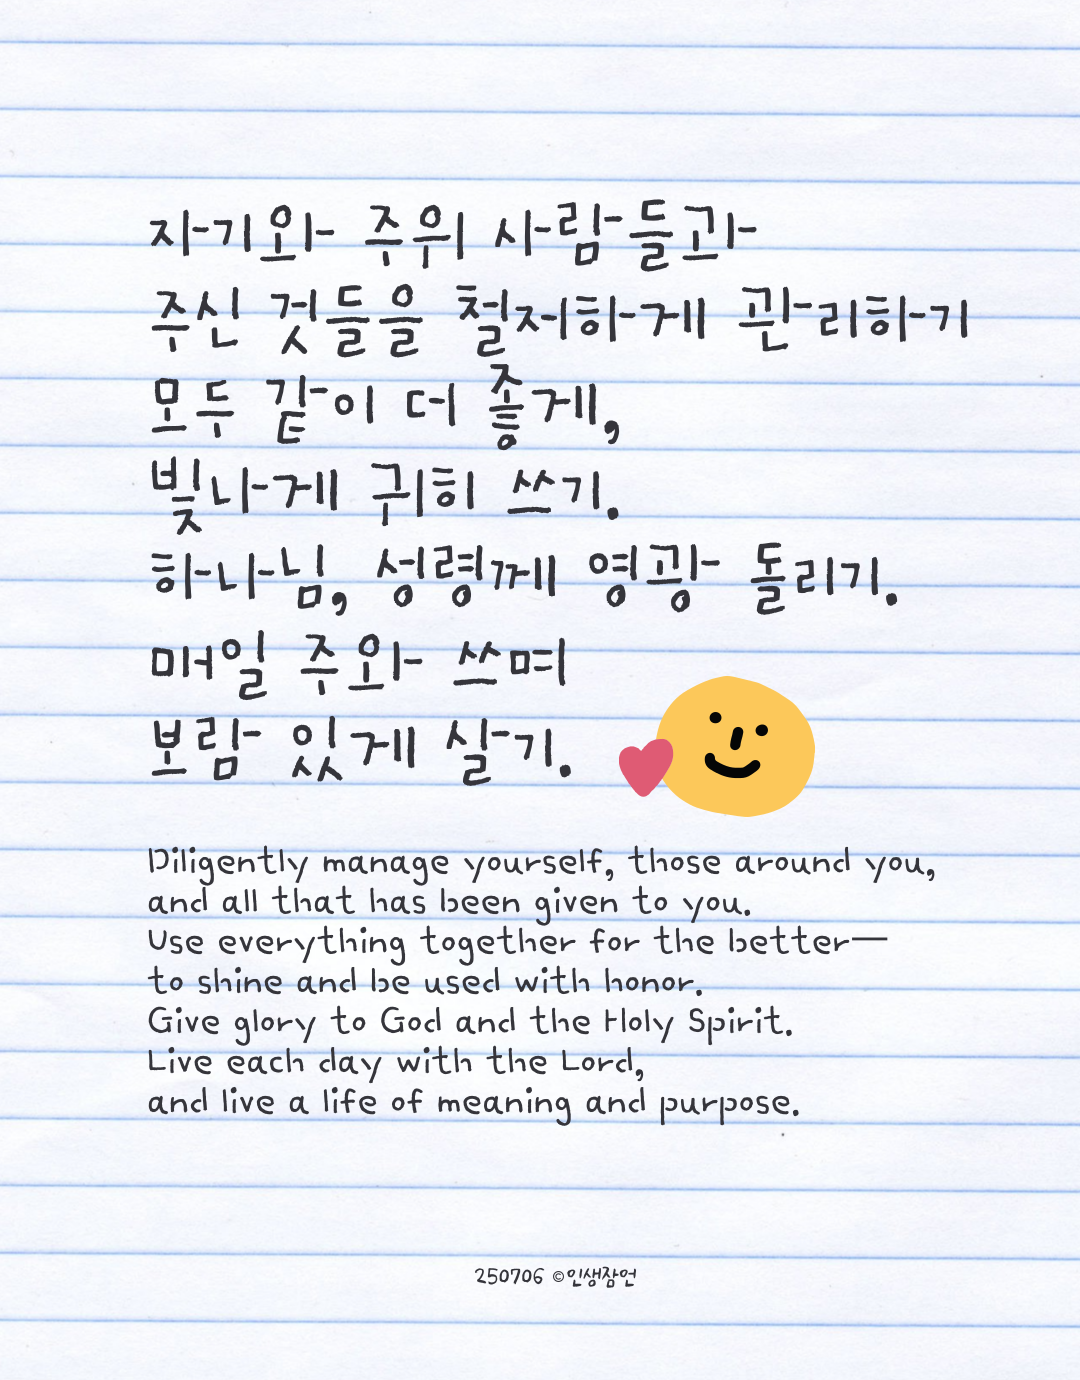 자기와 주위 사람들과
주신 것들을 철저하게 관리하기
모두 같이 더 좋게,
빛나게 귀히 쓰기.
하나님, 성령께 영광 돌리기.
매일 주와 쓰며
보람 있게 살기.
Diligently manage yourself, those around you,
and all that has been given to you.
Use everything together for the better—
to shine and be used with honor.
Give glory to God and the Holy Spirit.
Live each day with the Lord,
and live a life of meaning and purpose.
250706 ©인생잠언